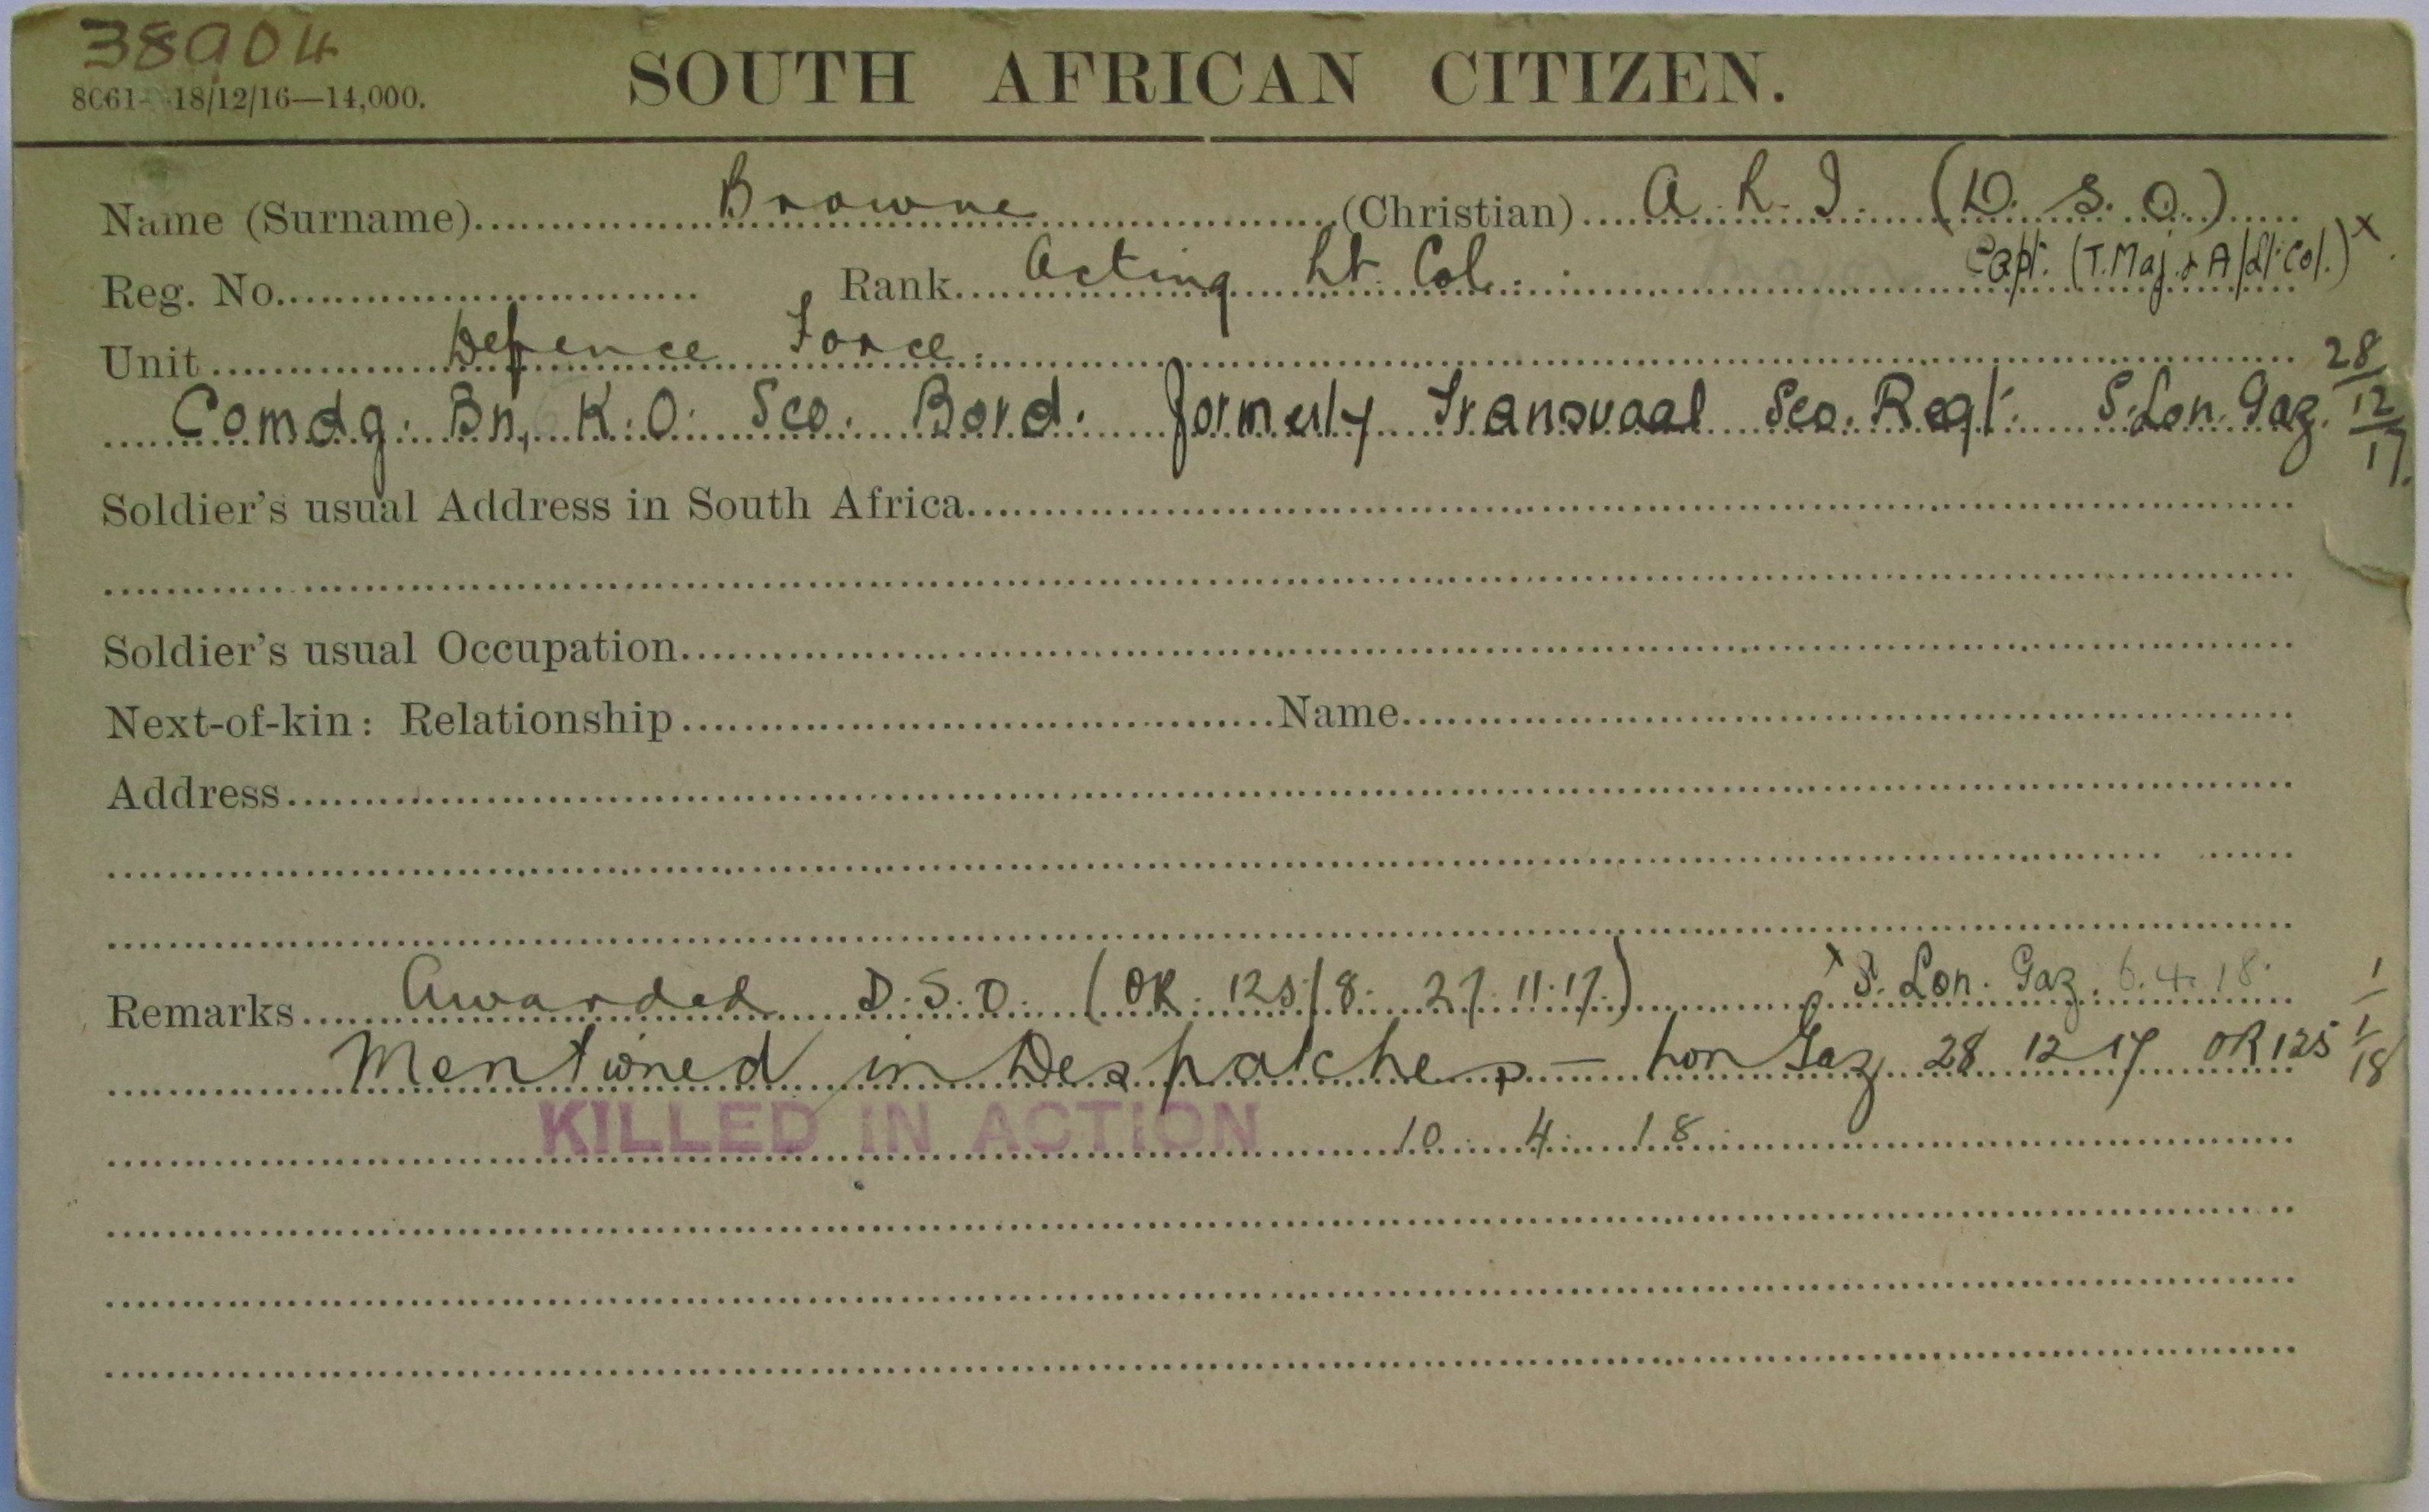 38904
8C61 18/12/16—14,000.
SOUTH AFRICAN CITIZEN.
Name (Surname) Browne (Christian) A. L. I. (D. S. O.)
Reg. No. Rank Acting Lt. Col. Capt. (T. Maj. & A/Lt. Col.) x
Unit Defence Force.
Comdg. Bn, K. O. Sco. Bord. formerly Transvaal Sco. Regt. S. Lon. Gaz. 28/12/17.
Soldier's usual Address in South Africa
Soldier's usual Occupation
Next-of-kin: Relationship Name
Address
Remarks Awarded D.S.O. (OR. 125/8. 27.11.17.) x S. Lon. Gaz. 6.4.18.
Mentioned in Despatches — Lon Gaz 28 12 17 OR 125 1/1/18
KILLED IN ACTION 10. 4. 18.